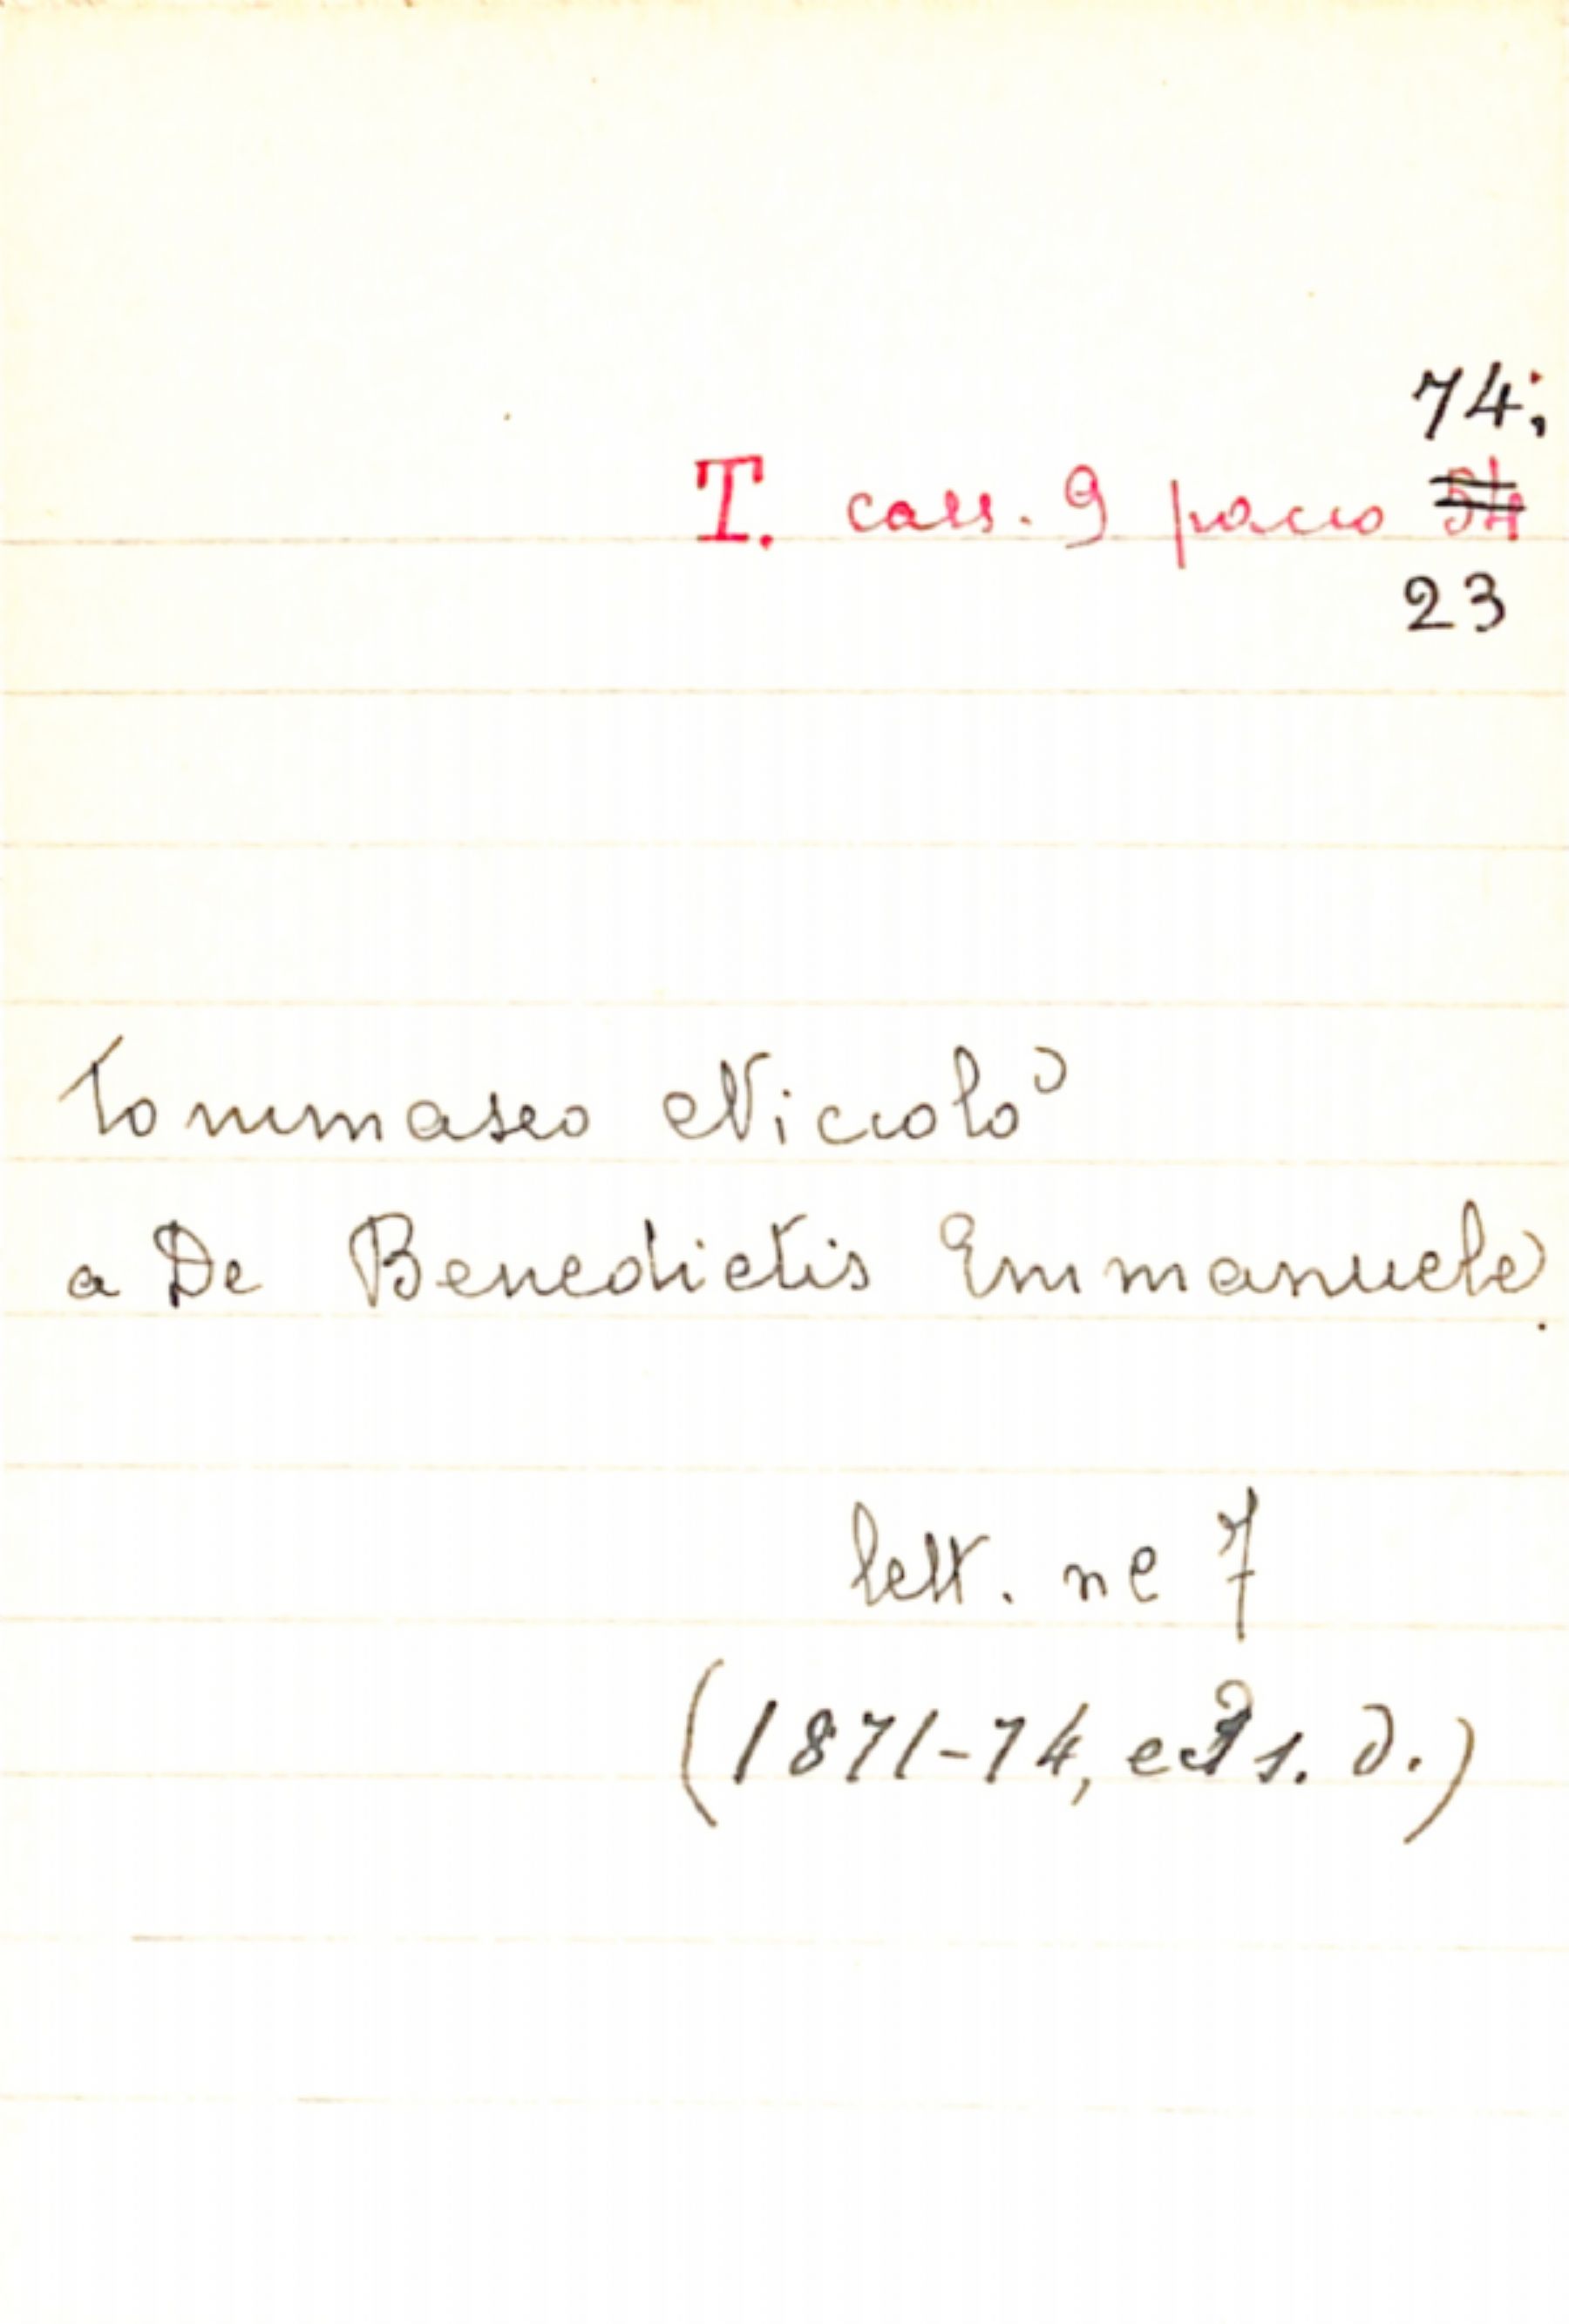 74;
T. cass. 9 pacco 54
23
Tommaseo Niccolò
a De Benedictis Emmanuele.
lett. ne 7
(1871-74, e s. d.)